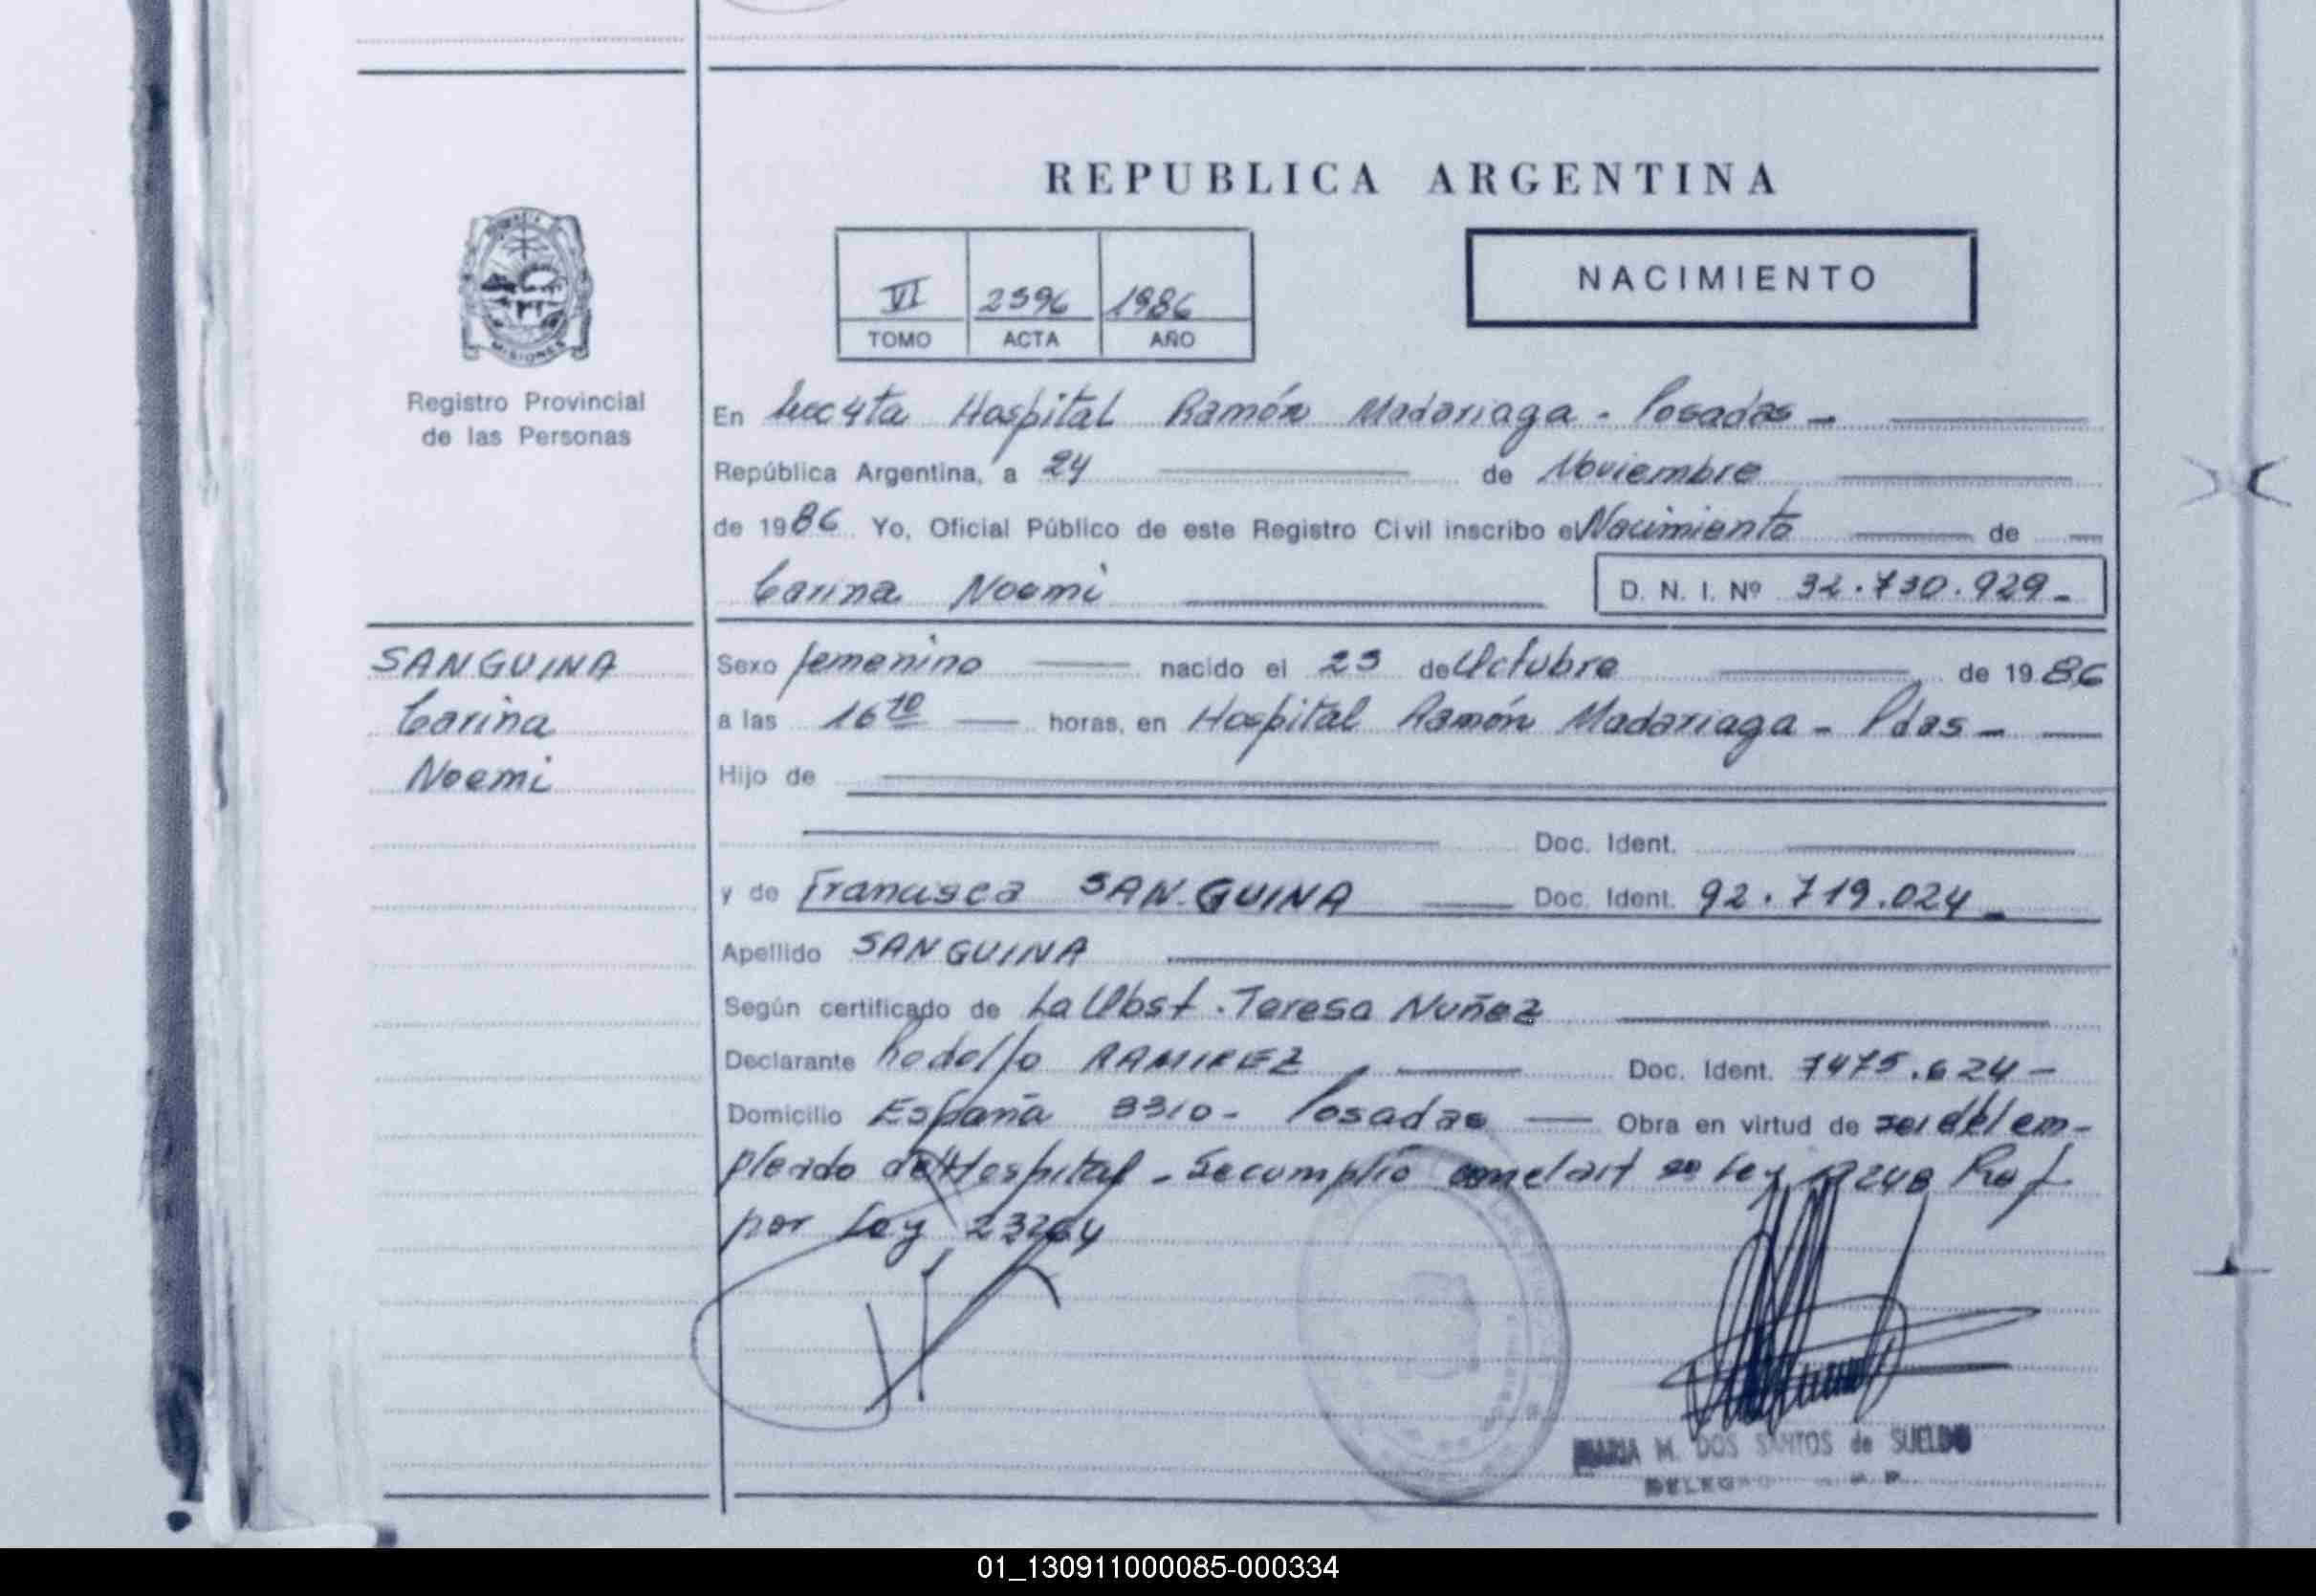 REPUBLICA ARGENTINA
NACIMIENTO
VI 2396 1986
TOMO ACTA AÑO
MISIONES
Registro Provincial
de las Personas
En Secc 4ta Hospital Ramón Madariaga - Posadas -
República Argentina, a 24 de Noviembre
de 1986 Yo, Oficial Público de este Registro Civil inscribo el Nacimiento de
Carina Noemi D. N. I. Nº 32.730.929-
SANGUINA
Carina
Noemi
Sexo femenino nacido el 23 de Octubre de 1986
a las 16 10 horas, en Hospital Ramón Madariaga - Pdas -
Hijo de
Doc. Ident.
y de Francisca SANGUINA Doc. Ident. 92.719.024-
Apellido SANGUINA
Según certificado de La Obst. Teresa Nuñez
Declarante Rodolfo RAMIREZ Doc. Ident. 7475.624-
Domicilio España 3310- Posadas Obra en virtud de ser del em-
pleado del Hospital - Se cumplió con el art Ley 18248 Ref
por Ley 23264
MARIA M. DOS SANTOS de SUELDO
01_130911000085-000334